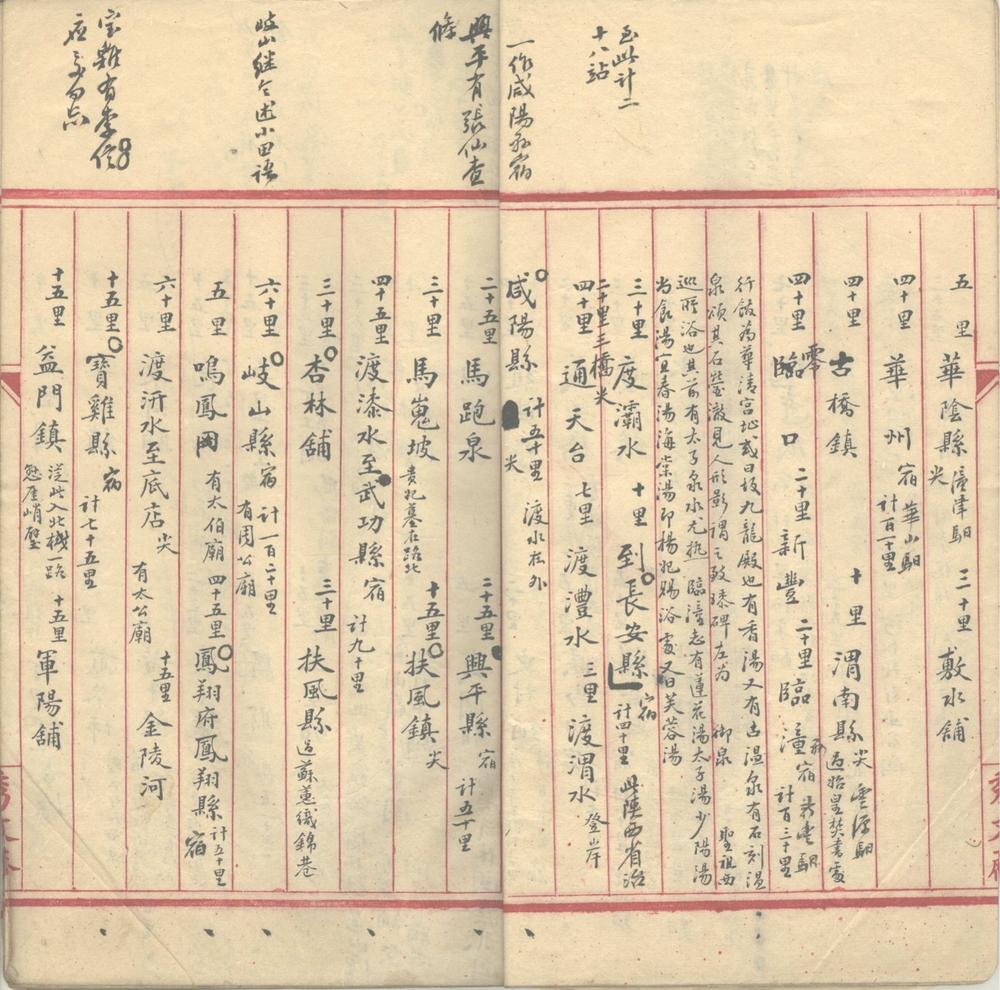 至此計二
十八站
一作咸陽和宿
五里 華陰縣 潼津馹 尖 三十里 敷水舖
四十里 華州 宿 華山馹 計百二十里
四十里 古橋鎮 十里 渭南縣 尖 豐原馹 過始皇焚書處
四十里 臨口 零 二十里 新豐 二十里 臨潼 宿 新豐馹 計百三十里
行館為華清宮址或曰故九龍殿也有香湯又有古温泉有石刻温
泉頌其石瑩澈見人形影謂之玻瓈碑左為 御泉 聖祖西
巡時浴也其前有太子泉水尤熱 臨潼志有蓮花湯太子湯少陽湯
尚食湯宜春湯海棠湯即楊妃賜浴處又曰芙蓉湯
三十里 度灞水 十里 到長安縣 宿 計四十里 此陝西省治
二十里三橋尖
四十里 通天台 七里 渡灃水 三里 渡渭水 登岸
咸陽縣 尖 計五十里 渡水在外
興平有張仙查
條
岐山繼令述小田語
宝雞有李信
二十五里 馬跑泉 二十五里 興平縣 宿 計五十里
三十里 馬嵬坡 貴妃墓在路北 十五里 扶風鎮 尖
四十五里 渡漆水至武功縣 宿 計九十里
三十里 杏林舖 三十里 扶風縣 過蘇蕙織錦巷
六十里 岐山縣 宿 計一百二十里 有周公廟
五里 鳴鳳岡 有太伯廟 四十五里 鳳翔府鳳翔縣 宿 計五十里
六十里 渡汧水至底店 尖 有太公廟 十五里 金陵河
十五里 寶雞縣 宿 計七十五里
十五里 益門鎮 從此入北棧一路 懸崖峭壁 十五里 軍陽舖